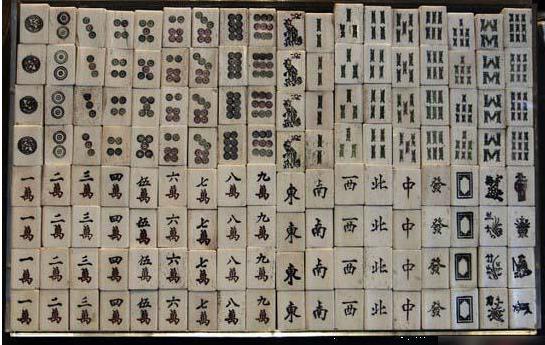 一 二 三 四 伍 六 七 八 九 東 南 西 北 中 發
萬 萬 萬 萬 萬 萬 萬 萬 萬
一 二 三 四 伍 六 七 八 九 東 南 西 北 中 發
萬 萬 萬 萬 萬 萬 萬 萬 萬
一 二 三 四 伍 六 七 八 九 東 南 西 北 中 發
萬 萬 萬 萬 萬 萬 萬 萬 萬
一 二 三 四 伍 六 七 八 九 東 南 西 北 中 發
萬 萬 萬 萬 萬 萬 萬 萬 萬